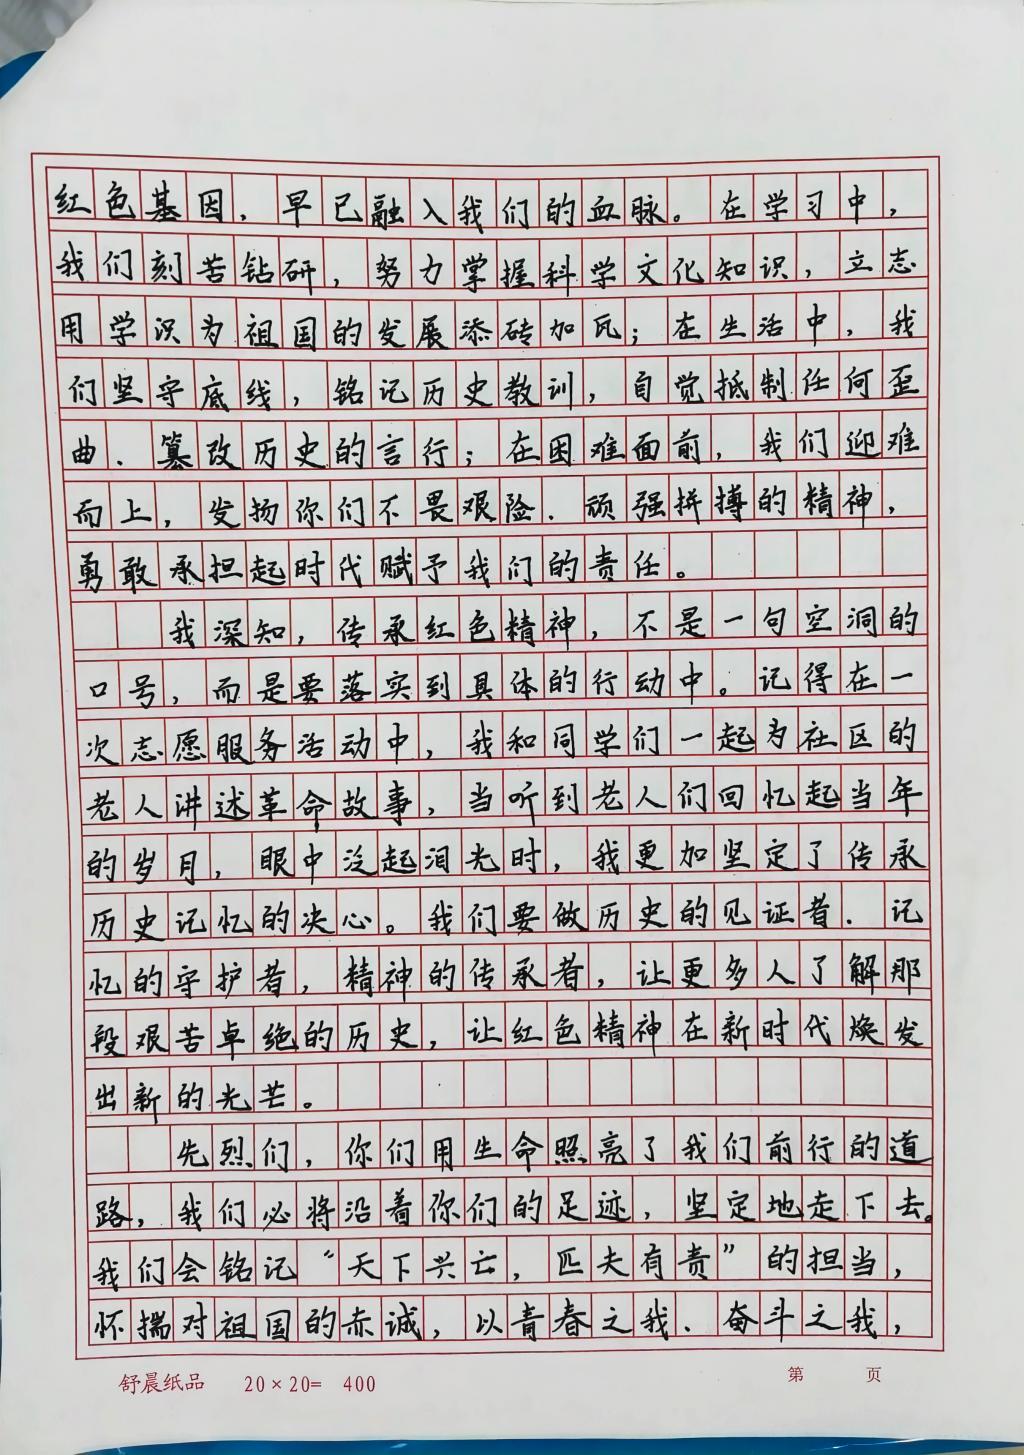 红色基因，早已融入我们的血脉。在学习中，
我们刻苦钻研，努力掌握科学文化知识，立志
用学识为祖国的发展添砖加瓦；在生活中，我
们坚守底线，铭记历史教训，自觉抵制任何歪
曲、篡改历史的言行；在困难面前，我们迎难
而上，发扬你们不畏艰险、顽强拼搏的精神，
勇敢承担起时代赋予我们的责任。
我深知，传承红色精神，不是一句空洞的
口号，而是要落实到具体的行动中。记得在一
次志愿服务活动中，我和同学们一起为社区的
老人讲述革命故事，当听到老人们回忆起当年
的岁月，眼中泛起泪光时，我更加坚定了传承
历史记忆的决心。我们要做历史的见证者、记
忆的守护者，精神的传承者，让更多人了解那
段艰苦卓绝的历史，让红色精神在新时代焕发
出新的光芒。
先烈们，你们用生命照亮了我们前行的道
路，我们必将沿着你们的足迹，坚定地走下去。
我们会铭记“天下兴亡，匹夫有责”的担当，
怀揣对祖国的赤诚，以青春之我、奋斗之我，
舒晨纸品 20×20= 400 第 页